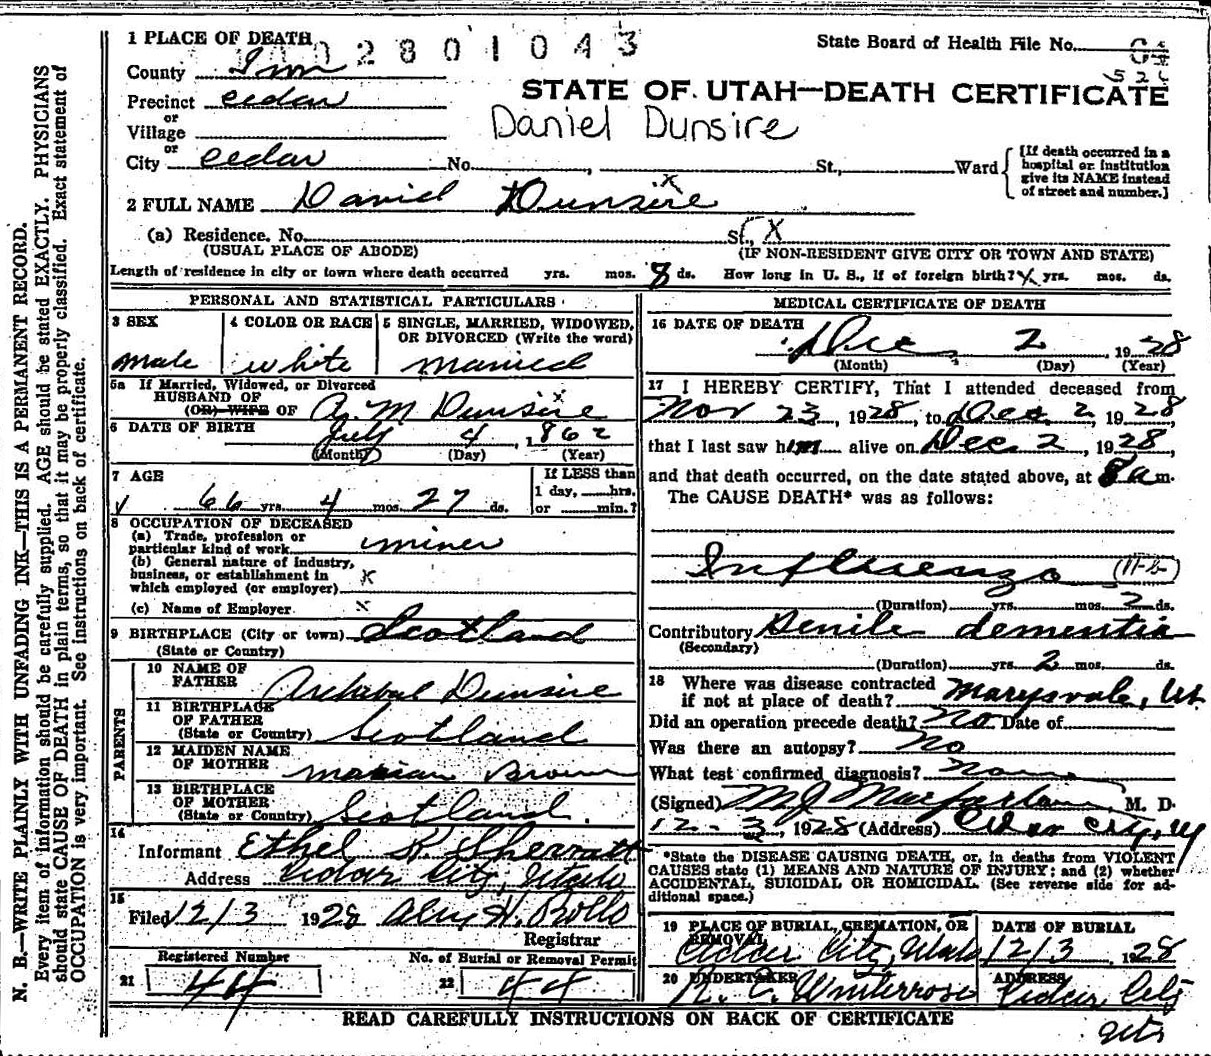 1 PLACE OF DEATH
002801043
State Board of Health File No.
64
526
County Irn
STATE OF UTAH—DEATH CERTIFICATE
Precinct cedar
or
Village
Daniel Dunsire
or
City cedar No. , St., Ward
[If death occurred in a
hospital or institution
give its NAME instead
of street and number.]
2 FULL NAME Daniel Dunsire x
(a) Residence. No. St., X
(USUAL PLACE OF ABODE) (IF NON-RESIDENT GIVE CITY OR TOWN AND STATE)
Length of residence in city or town where death occurred yrs. mos. 8 ds. How long in U. S., if of foreign birth? x yrs. mos. ds.
PERSONAL AND STATISTICAL PARTICULARS
3 SEX 4 COLOR OR RACE 5 SINGLE, MARRIED, WIDOWED,
OR DIVORCED (Write the word)
male white married
5a If Married, Widowed, or Divorced
HUSBAND OF
(OR) WIFE OF M Dunsire x
6 DATE OF BIRTH July 4, 1862
(Month) (Day) (Year)
7 AGE If LESS than
1 day, hrs.
66 yrs. 4 mos. 27 ds. or min.?
8 OCCUPATION OF DECEASED
(a) Trade, profession or
particular kind of work miner
(b) General nature of industry,
business, or establishment in
which employed (or employer) x
(c) Name of Employer x
9 BIRTHPLACE (City or town) Scotland
(State or Country)
PARENTS
10 NAME OF
FATHER Archibal Dunsire
11 BIRTHPLACE
OF FATHER
(State or Country) Scotland
12 MAIDEN NAME
OF MOTHER Marian Brown
13 BIRTHPLACE
OF MOTHER
(State or Country) Scotland.
14
Informant Ethel R. Sherratt
Address Cedar City, Utah
15
Filed 12/3 1928 H. Rollo
Registrar
Registered Number No. of Burial or Removal Permit
21 44 22 44
MEDICAL CERTIFICATE OF DEATH
16 DATE OF DEATH
Dec 2, 1928
(Month) (Day) (Year)
17 I HEREBY CERTIFY, That I attended deceased from
Nov 23, 1928, to Dec. 2, 1928,
that I last saw him alive on Dec. 2, 1928,
and that death occurred, on the date stated above, at 8 a m.
The CAUSE DEATH* was as follows:
Influenza (11-b)
(Duration) yrs. mos. 2 ds.
Contributory Senile dementia
(Secondary)
(Duration) yrs. 2 mos. ds.
18 Where was disease contracted
if not at place of death? Marysvale, Ut.
Did an operation precede death? No Date of
Was there an autopsy? No
What test confirmed diagnosis? None
(Signed) M J Macfarlane, M. D.
12-3, 1928 (Address) Cedar City, Ut
*State the DISEASE CAUSING DEATH, or, in deaths from VIOLENT
CAUSES state (1) MEANS AND NATURE OF INJURY; and (2) whether
ACCIDENTAL, SUICIDAL OR HOMICIDAL. (See reverse side for ad-
ditional space.)
19 PLACE OF BURIAL, CREMATION, OR
REMOVAL DATE OF BURIAL
Cedar City, Utah 12/3, 1928
20 UNDERTAKER ADDRESS
Winterrose Cedar City
Uta
READ CAREFULLY INSTRUCTIONS ON BACK OF CERTIFICATE
N. B.—WRITE PLAINLY WITH UNFADING INK—THIS IS A PERMANENT RECORD.
Every item of information should be carefully supplied. AGE should be stated EXACTLY. PHYSICIANS
should state CAUSE OF DEATH in plain terms, so that it may be properly classified. Exact statement of
OCCUPATION is very important. See instructions on back of certificate.